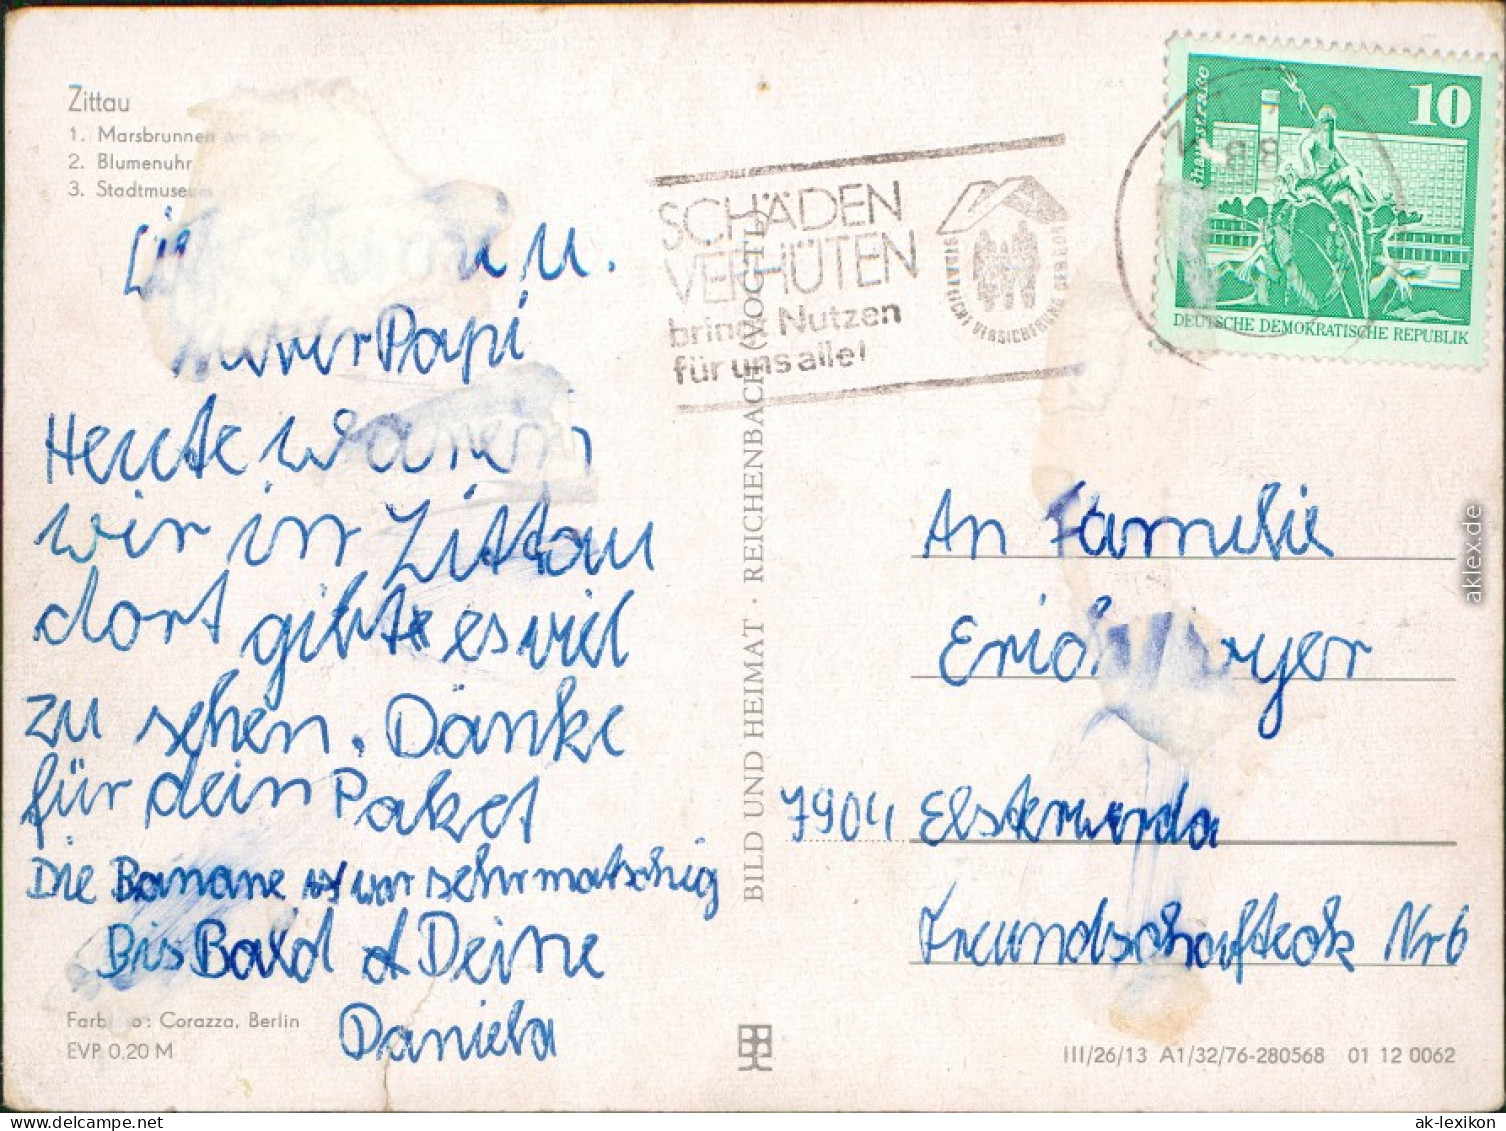 Zittau
1. Marsbrunnen am
2. Blumenuhr
3. Stadtmuseum
u.
Papi
Heute waren
wir in Zittau
dort gibt es viel
zu sehen. Danke
für dein Paket
Die Banane ist war sehr matschig
Bis Bald d Deine
Daniela
Farbfoto: Corazza, Berlin
EVP 0.20 M
BILD UND HEIMAT · REICHENBACH (VOGTL)
SCHÄDEN
VERHÜTEN
bringt Nutzen
für uns alle!
STAATLICHE VERSICHERUNG DER DDR
88
10
DEUTSCHE DEMOKRATISCHE REPUBLIK
An Familie
Erich
7904 Elsterwerda
Freundschafteck Nr 6
III/26/13 A1/32/76-280568 01 12 0062
aklex.de
www.ansichtskarten-lexikon.de
ak-lexikon